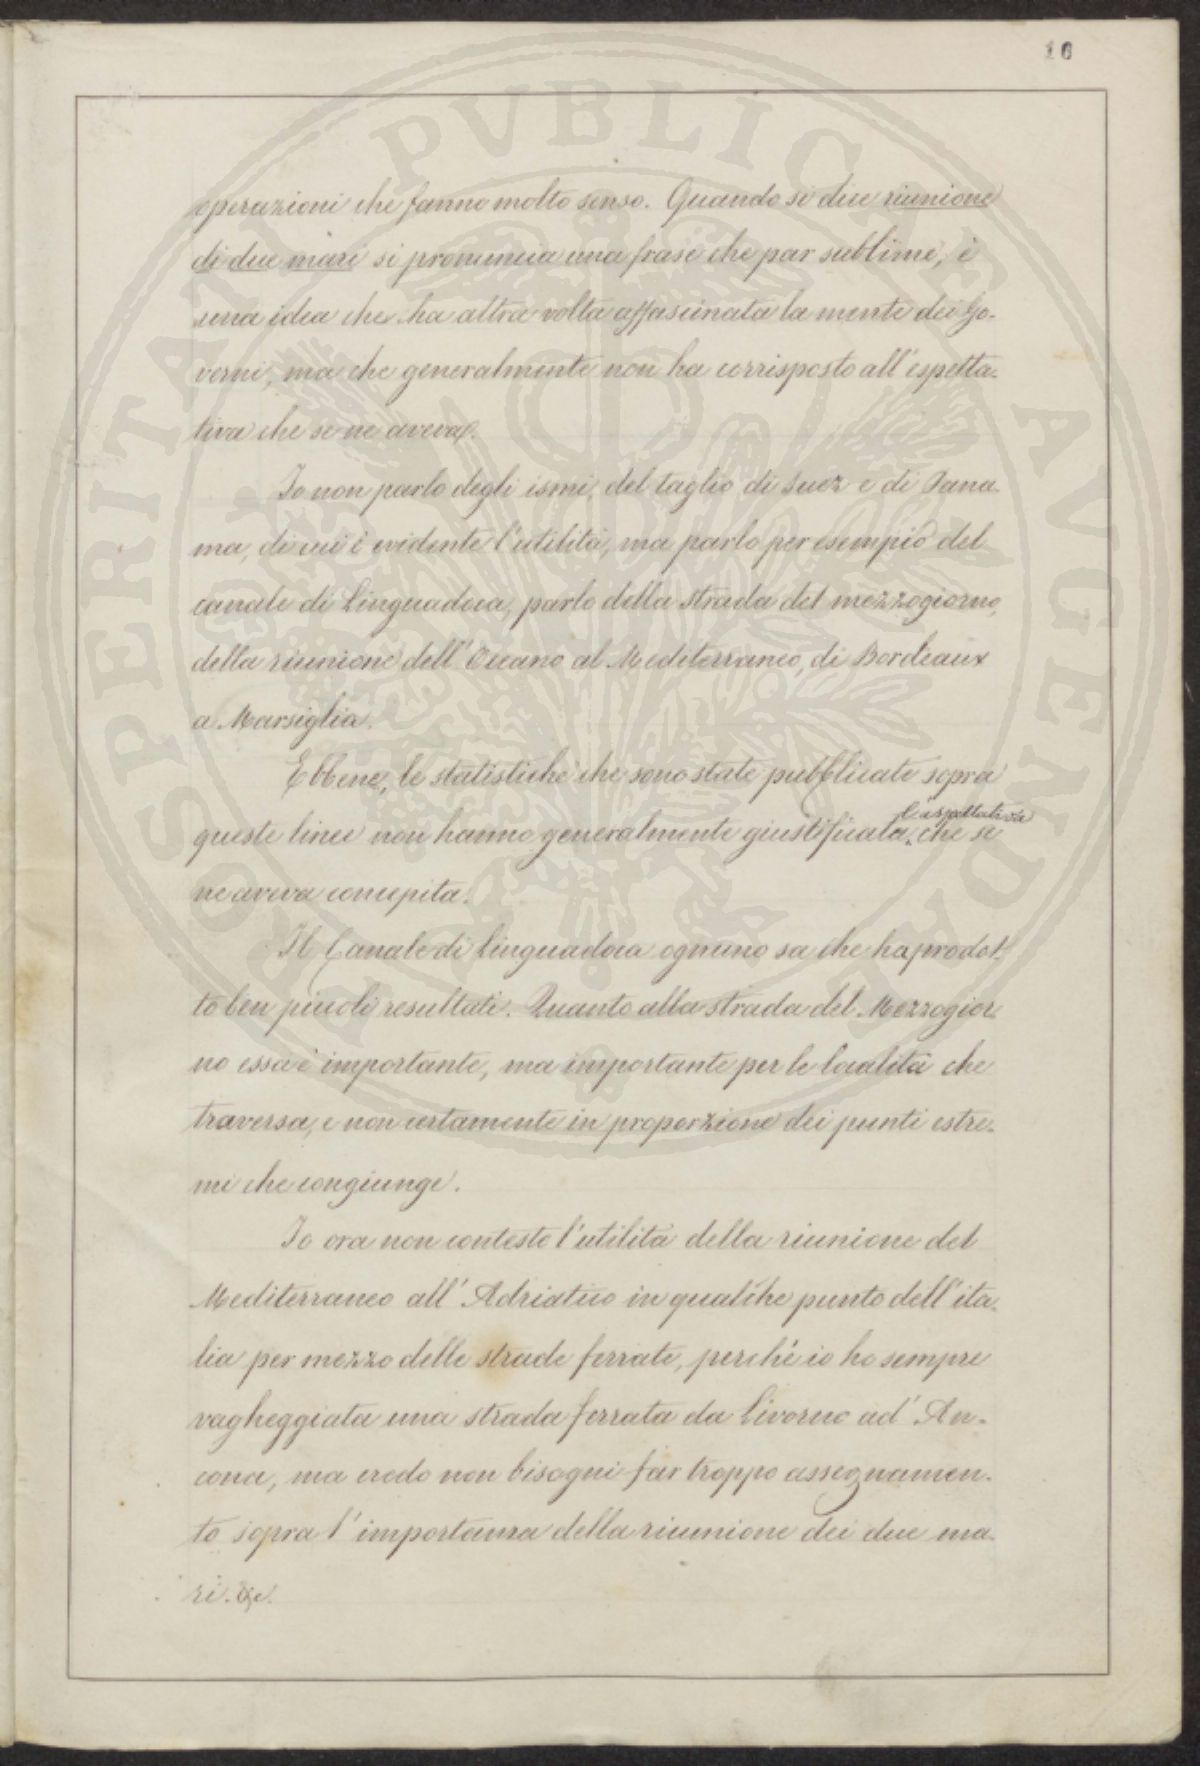 16
operazioni che fanno molto senso. Quando si dice riunione
di due mari si pronuncia una frase che par sublime, è
una idea che ha altra volta affascinata la mente dei Go-
verni, ma che generalmente non ha corrisposto all'espetta-
tiva che se ne aveva.
Io non parlo degli ismi, del taglio di Suez e di Pana-
ma, di cui è evidente l'utilità, ma parlo per esempio del
canale di Linguadoca, parlo della strada del mezzogiorno,
della riunione dell'Oceano al Mediterraneo, di Bordeaux
a Marsiglia.
Ebbene, le statistiche che sono state pubblicate sopra
l'espettativa
queste linee non hanno generalmente giustificata che se
ne aveva concepita.
Il Canale di Linguadoca ognuno sa che ha prodot-
to ben piccoli resultati. Quanto alla strada del Mezzogior-
no essa è importante, ma importante per le località che
traversa, e non certamente in proporzione dei punti estre-
mi che congiunge.
Io ora non contesto l'utilità della riunione del
Mediterraneo all'Adriatico in qualche punto dell'ita-
lia per mezzo delle strade ferrate, perchè io ho sempre
vagheggiata una strada ferrata da Livorno ad An-
cona, ma credo non bisogni far troppo assegnamen-
to sopra l'importanza della riunione dei due ma-
ri.
SPERITATI PVBLICAE AVGENDAE